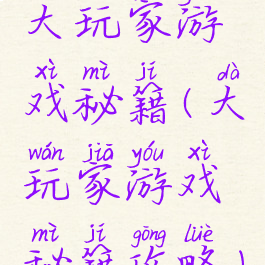 大玩家游
xì mì jí dà
戏秘籍(大
wán jiā yóu xì
玩家游戏
mì jí gōng lüè
秘籍攻略)